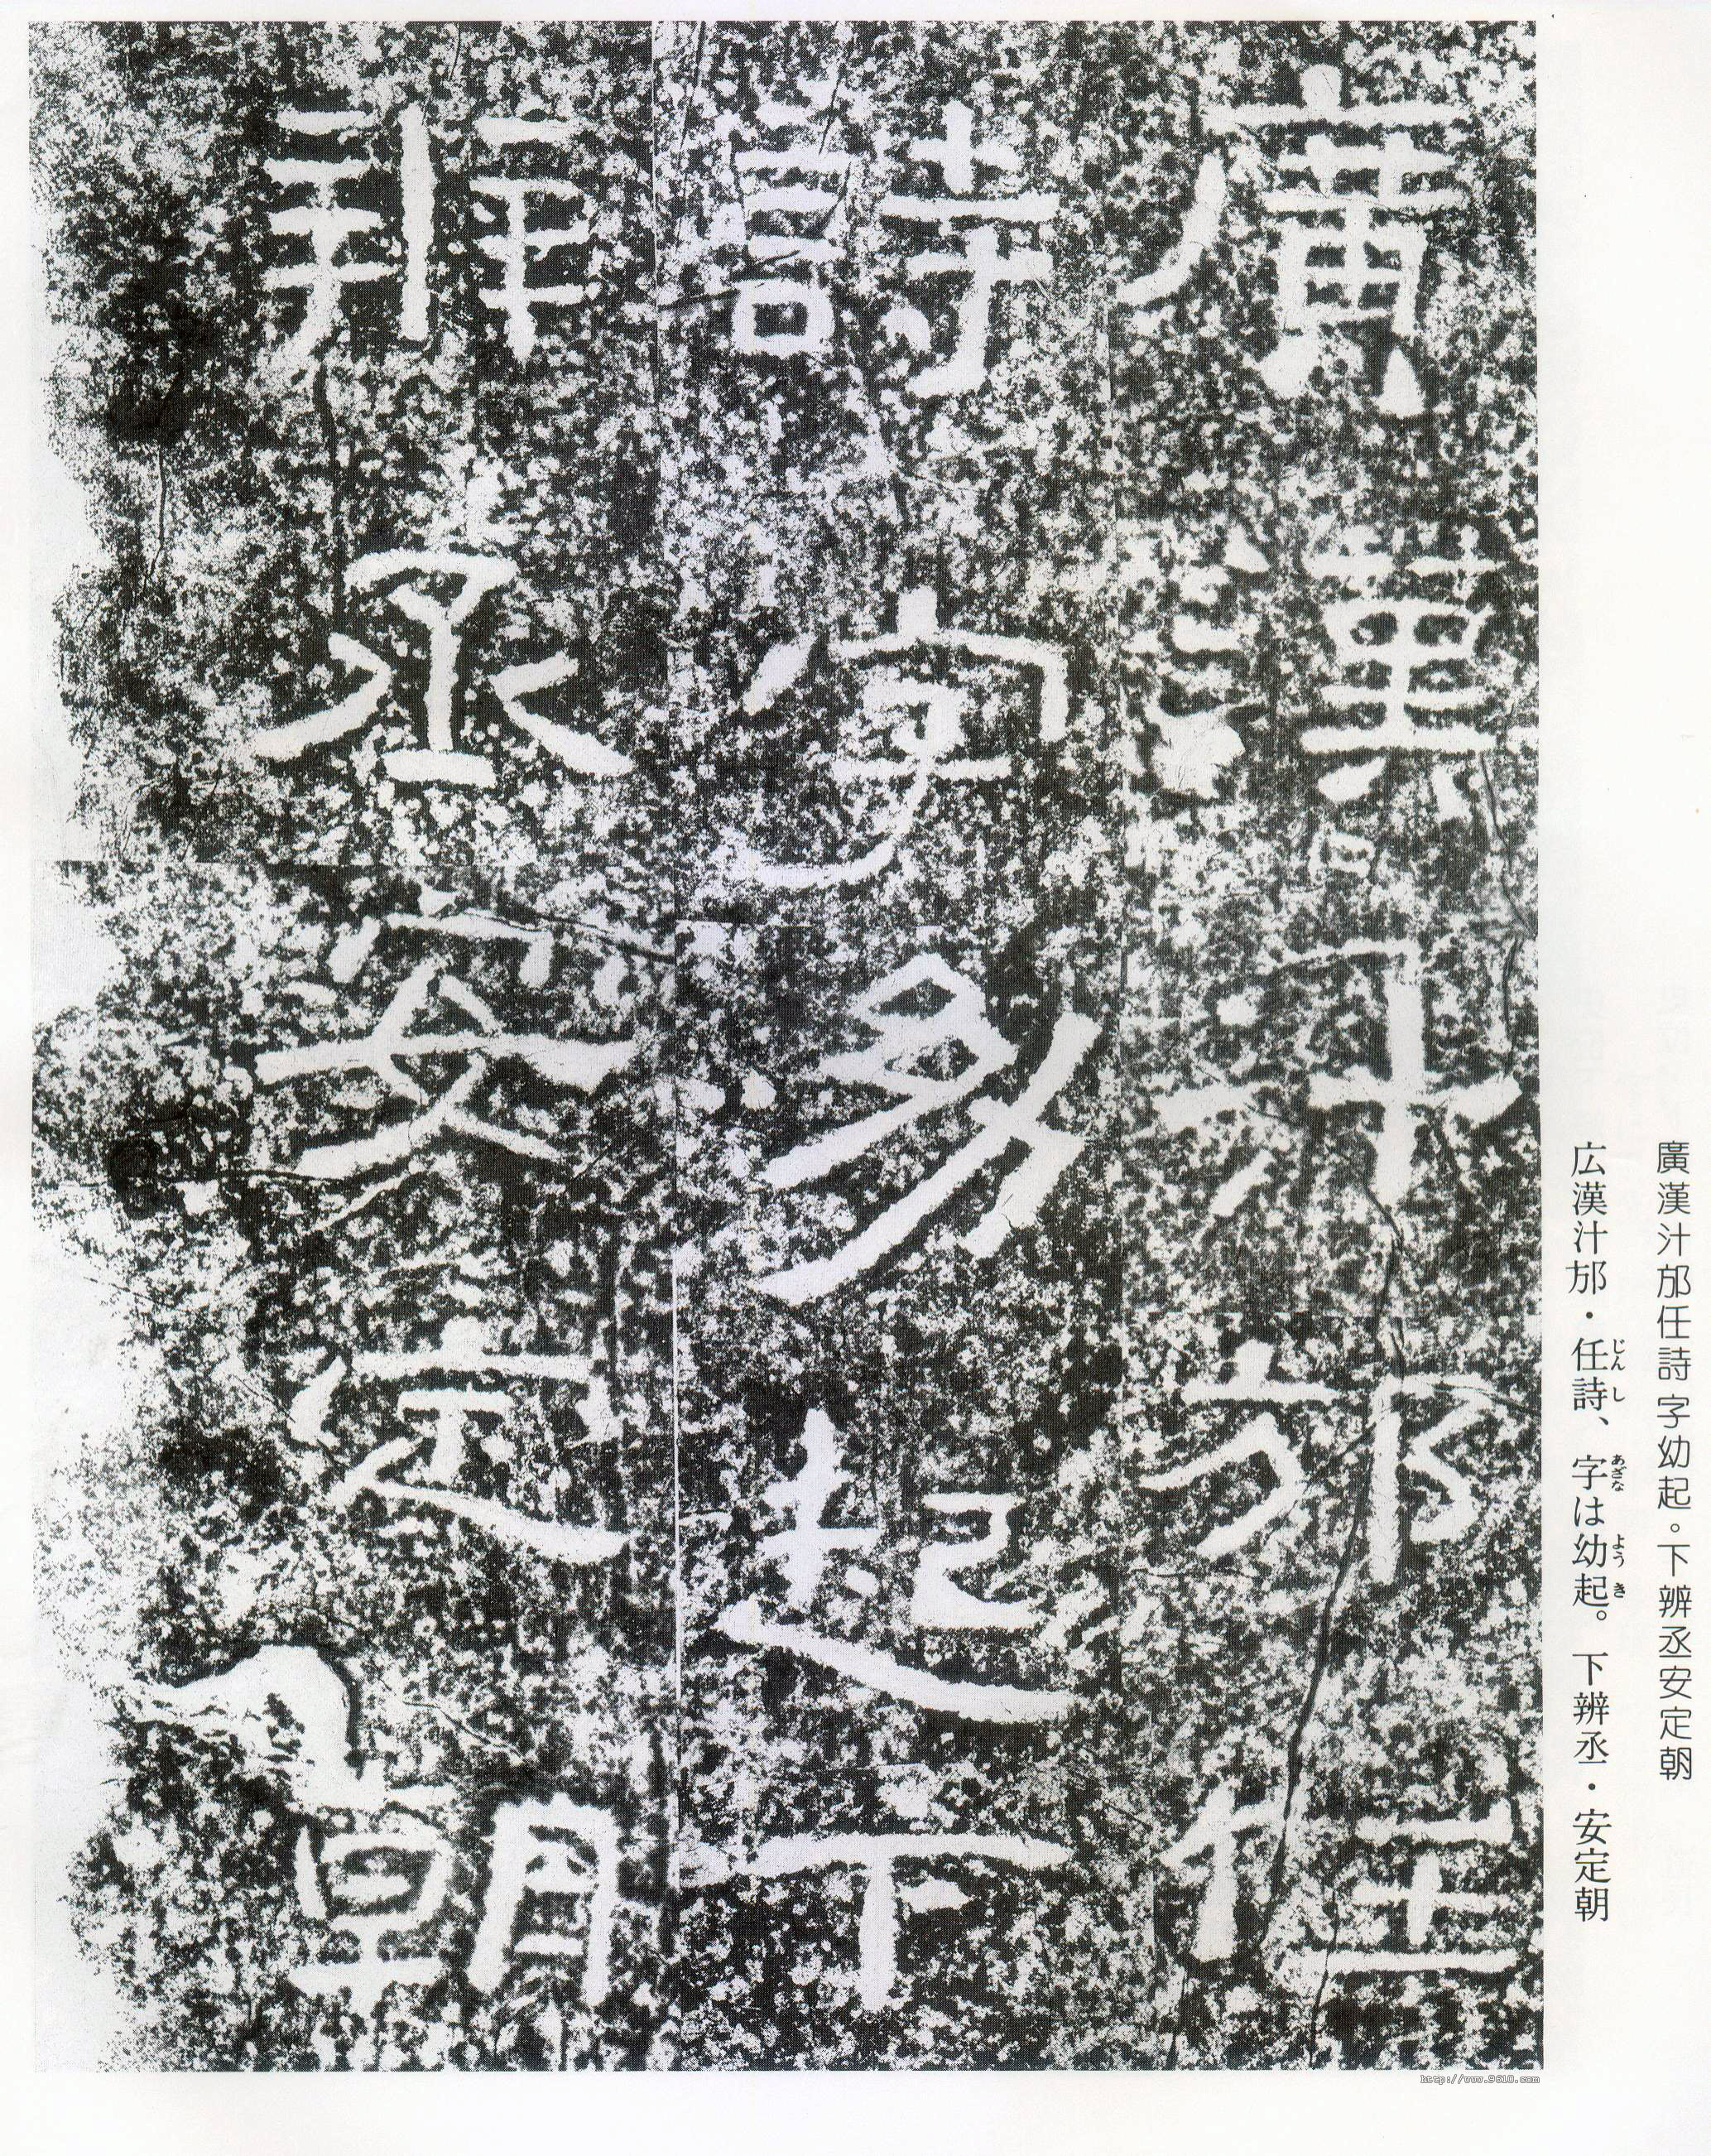 廣漢汁邡任詩字幼起。下辨丞安定朝
広漢汁邡・任詩、字は幼起。下辨丞・安定朝
じんし
あざな
ようき
廣漢汁邡任
詩字幼起下
辨丞安定朝
http://www.9610.com